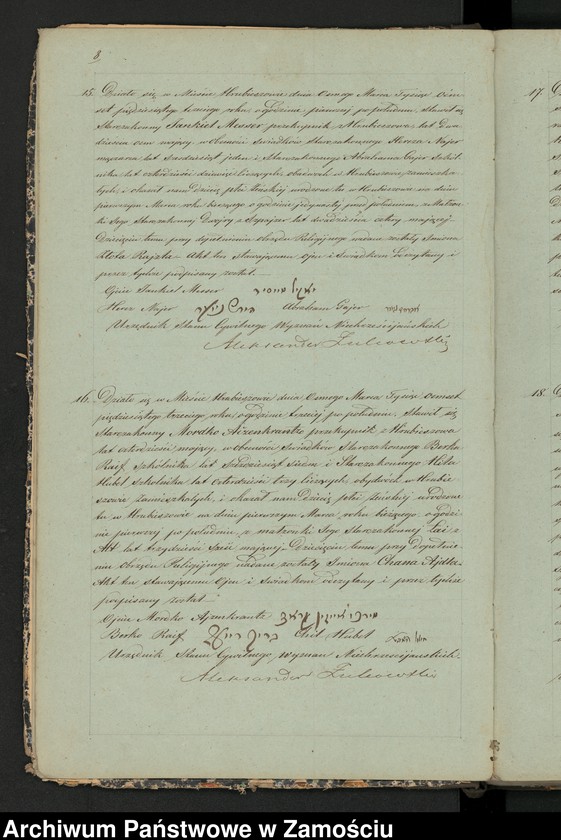 8
15. Działo się w Mieście Hrubieszowie dnia Osmego Marca Tysiąc Ośm
set pięćdziesiątego trzeciego roku o godzinie pierwszej po południu, Stawił się
Starozakonny Jankiel Messer przekupnik z Hrubieszowa lat Dwa
dzieścia ośm mający, w Obecności Świadków Starozakonnego Hersza Najer
lat Szesdziesiąt jeden i Starozakonnego Abrahama Gajer Szkol
nika lat czterdzieści dziewięć liczących, obudwóch w Hrubieszowie zamieszka
łych, i okazał nam Dziecię płci Żeńskiej urodzone tu w Hrubieszowie na dniu
pierwszym Marca roku bieżącego o godzinie jedynastej przed południem, z Małżon
ki Jego Starozakonnej Dwojry z lat dwadzieścia cztery mającej
Dziecięciu temu przy dopełnieniu obrzędu Religijnego nadane zostały Imiona
Złota Rajzla. Akt ten stawającemu Ojcu i Świadkom odczytany i
przez tychże podpisany został.
Ojciec Jankiel Messer יאנקיל מייסיר
Hersz Najer הירש נייער Abraham Gajer
Urzędnik Stanu Cywilnego Wyznań Niechrześcijańskich
Aleksander Żukowski
16. Działo się w Mieście Hrubieszowie dnia Osmego Marca Tysiąc Ośmset
pięćdziesiątego trzeciego roku, o godzinie trzeciej po południu. Stawił się
Starozakonny Mordko Aizenkrantz przekupnik z Hrubieszowa
lat czterdzieści mający, w obecności Świadków Starozakonnego Berka
Raif, Szkolnika lat Sześćdziesiąt Siedm i Starozakonnego Hila
Hibel Szkolnika lat czterdzieści trzy liczących, obydwóch w Hrubie
szowie zamieszkałych, i okazał nam Dziecię płci Żeńskiej urodzone
tu w Hrubieszowie na dniu pierwszym Marca, roku bieżącego o godzi
nie pierwszej po południu, z małżonki Jego Starozakonnej Łai z
Akt lat trzydzieści sześć mającej. Dziecięciu temu przy dopełnie
niu Obrzędu Religijnego nadane zostały Imiona Chana Ajdla.
Akt ten stawającemu Ojcu i Świadkom odczytany i przez tychże
podpisany został.
Ojciec Mordko Ajzenkrantz
Berko Raif Chil Hibel
Urzędnik Stanu Cywilnego, Wyznań Niechrześcijańskich.
Aleksander Żukowski
17.
18.
Archiwum Państwowe w Zamościu